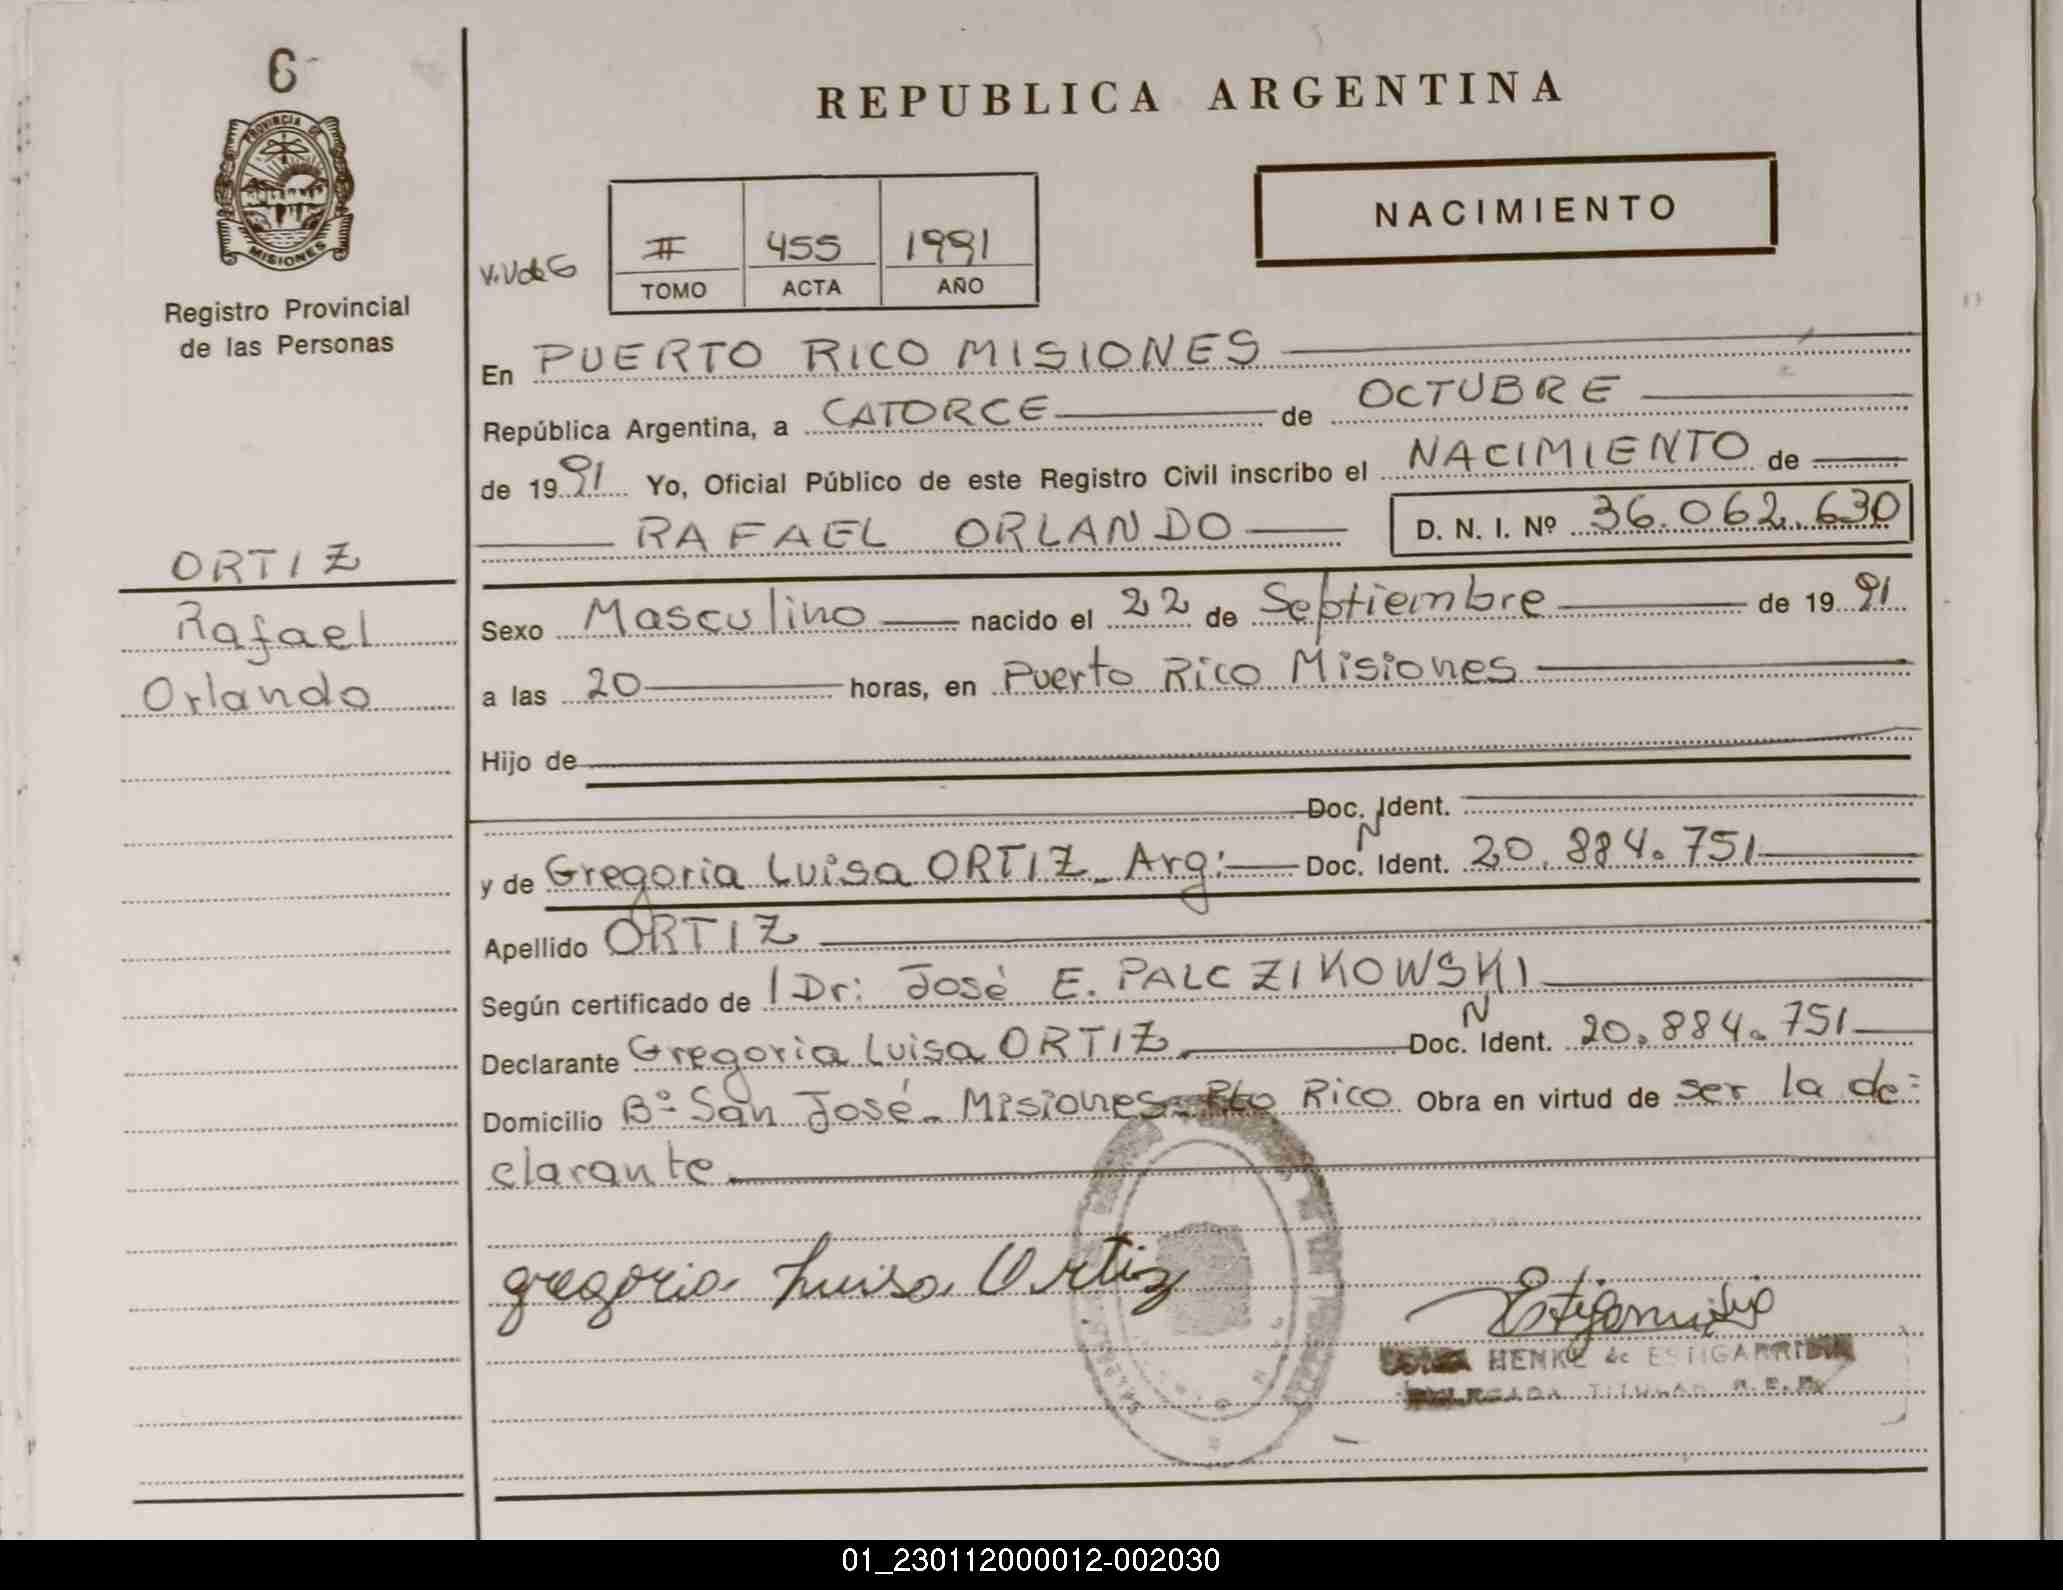 6
PROVINCIA DE
MISIONES
Registro Provincial
de las Personas
REPUBLICA ARGENTINA
NACIMIENTO
II 455 1991
TOMO ACTA AÑO
En PUERTO RICO MISIONES
República Argentina, a CATORCE de OCTUBRE
de 1991 Yo, Oficial Público de este Registro Civil inscribo el NACIMIENTO de
RAFAEL ORLANDO D. N. I. Nº 36.062.630
ORTIZ
Rafael
Orlando
Sexo Masculino nacido el 22 de Septiembre de 1991
a las 20 horas, en Puerto Rico Misiones
Hijo de
Doc. Ident.
y de Gregoria Luisa ORTIZ_ Arg: Doc. N Ident. 20.884.751
Apellido ORTIZ
Según certificado de Dr: José E. PALCZIKOWSKI
Declarante Gregoria Luisa ORTIZ Doc. N Ident. 20.884.751
Domicilio Bº San José_ Misiones_ Pto Rico Obra en virtud de ser la de=
clarante
gregoria Luisa Ortiz
HENKE de ESTIGARRIBIA
TITULAR R.P.P.
01_230112000012-002030